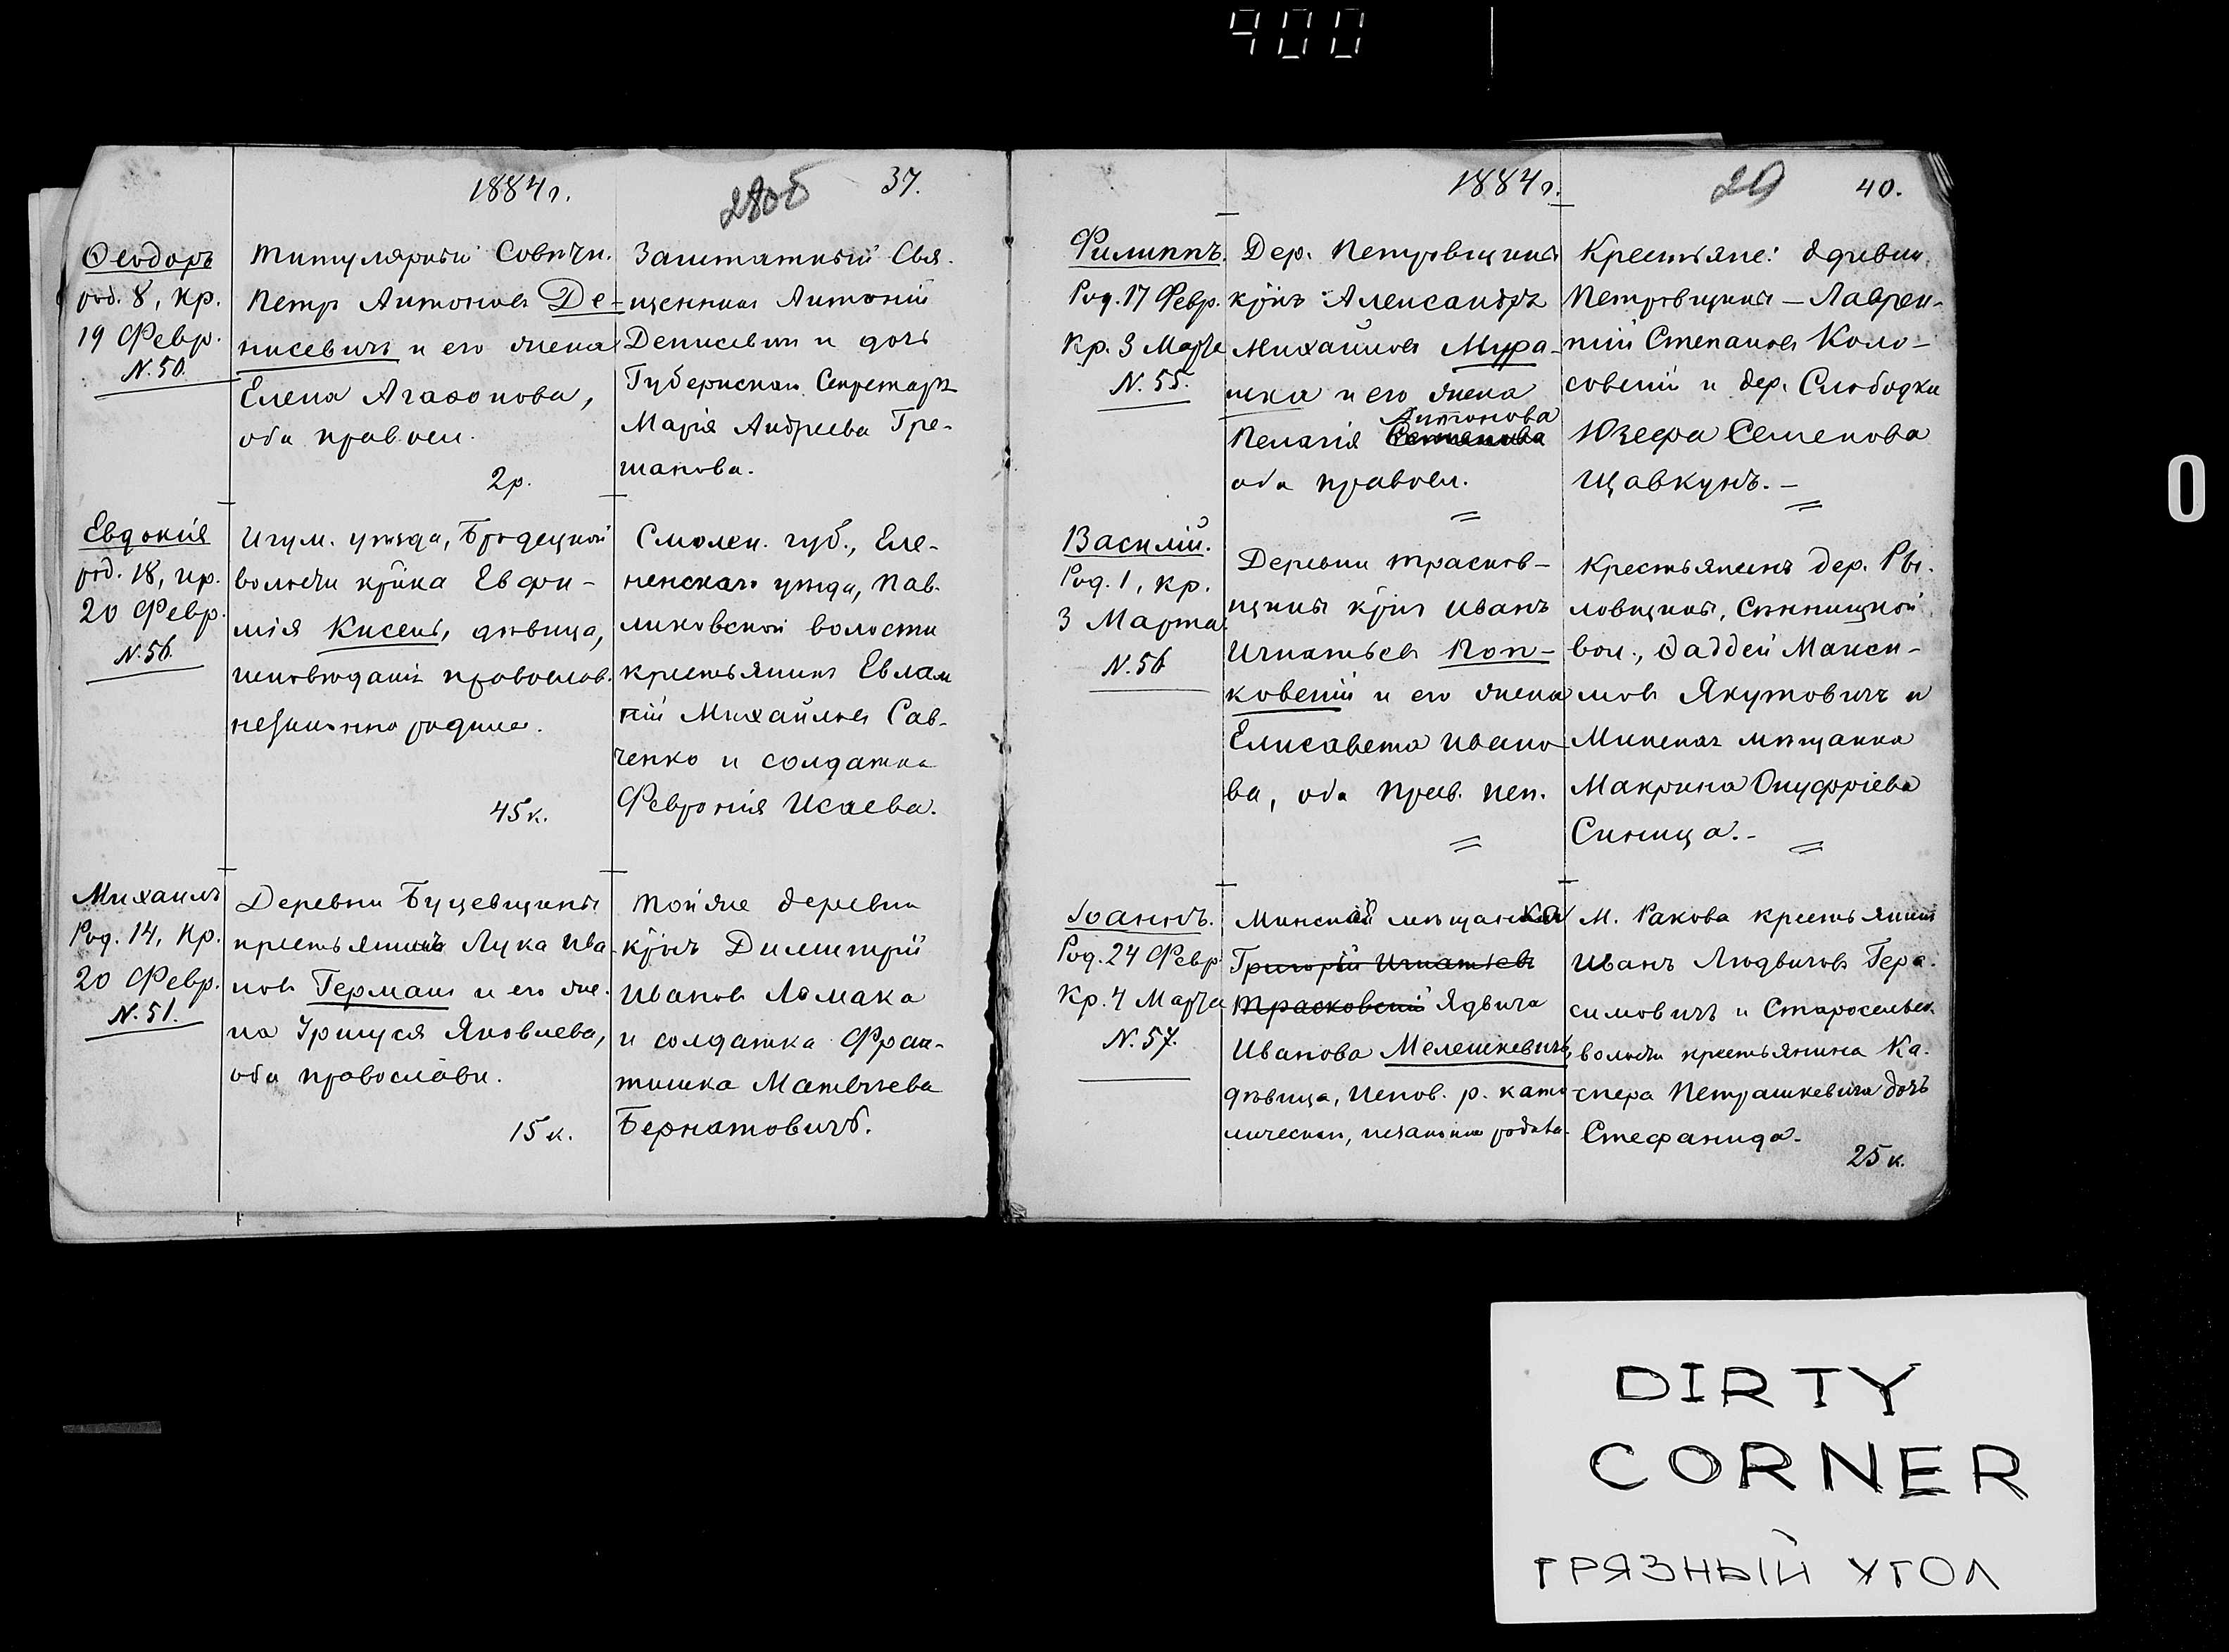 400
1884 г.
28об
37.
Ѳеодоръ
род. 8, кр.
19 Февр.
N. 50.
Титулярный Совѣтн.
Петръ Антоновъ Де-
нисевичъ и его жена
Елена Агаѳонова,
оба правосл.
2 р.
Заштатный Свя-
щенникъ Антоній
Денисевич и дочь
Губернскаго Секретаря
Марія Андреева Гре-
шанова.
Евдокія
род. 18, кр.
20 Февр.
N. 56
Игум. уѣзда, Бродецкой
волости кр̃нка Евфи-
мія Кисень, дѣвица,
исповѣданія православ.
незаконно родила.
45 к.
Смолен. губ., Еле-
ненскаго уѣзда, Пав-
лиховской волости
крестьянинъ Евлам
пій Михайловъ Сав-
ченко и солдатка
Февронія Исаева.
Михаилъ
Род. 14, Кр.
20 Февр.
N. 51.
Деревни Буцевщины
крестьянинъ Лука Ива-
новъ Германъ и его же-
на Уршуля Яковлева,
оба православн.
15 к.
Той же деревни
кр̃нъ Димитрій
Ивановъ Ломака
и солдатка Фран-
тишка Матвѣева
Бернатовичъ.
1884 г.
29
40.
Филиппъ.
Род. 17 Февр.
Кр. 3 Марта
N. 55.
Дер. Петровщины
кр̃нъ Александръ
Михайловъ Мура-
шка и его жена
Антонова
Пелагія Семенова
оба правосл.
Крестьяне: деревни
Петровщины — Лаврен-
тій Степановъ Коло-
совскій и дер. Слободки
Юзефа Семенова
Щавкунъ. —
Василій.
Род. 1, кр.
3 Марта.
N. 56
Деревни Трасков-
щины кр̃нъ Иванъ
Игнатьевъ Поп-
ковскій и его жена
Елисавета Ивано-
ва, оба прав. исп.
Крестьянинъ дер. Ры-
ловщины, Сѣнницкой
вол., Ѳаддей Макси-
мовъ Якутовичъ и
Минская мѣщанка
Макрина Онуфріева
Синица. —
Іоаннъ.
Род. 24 Февр.
Кр. 4 Марта
N. 57.
Минская мѣщанка
Григорій Игнатьевъ
Трасковскій Ядвига
Иванова Мелешкевичъ
дѣвица, испов. р. като-
лическаго, незаконно родила.
М. Ракова крестьянинъ
Иванъ Людвиговъ Гера-
симовичъ и Старосельск.
волости крестьянина Ка-
спера Петрашкевича дочь
Стефанида.
25 к.
0
DIRTY
CORNER
ГРЯЗНЫЙ УГОЛ